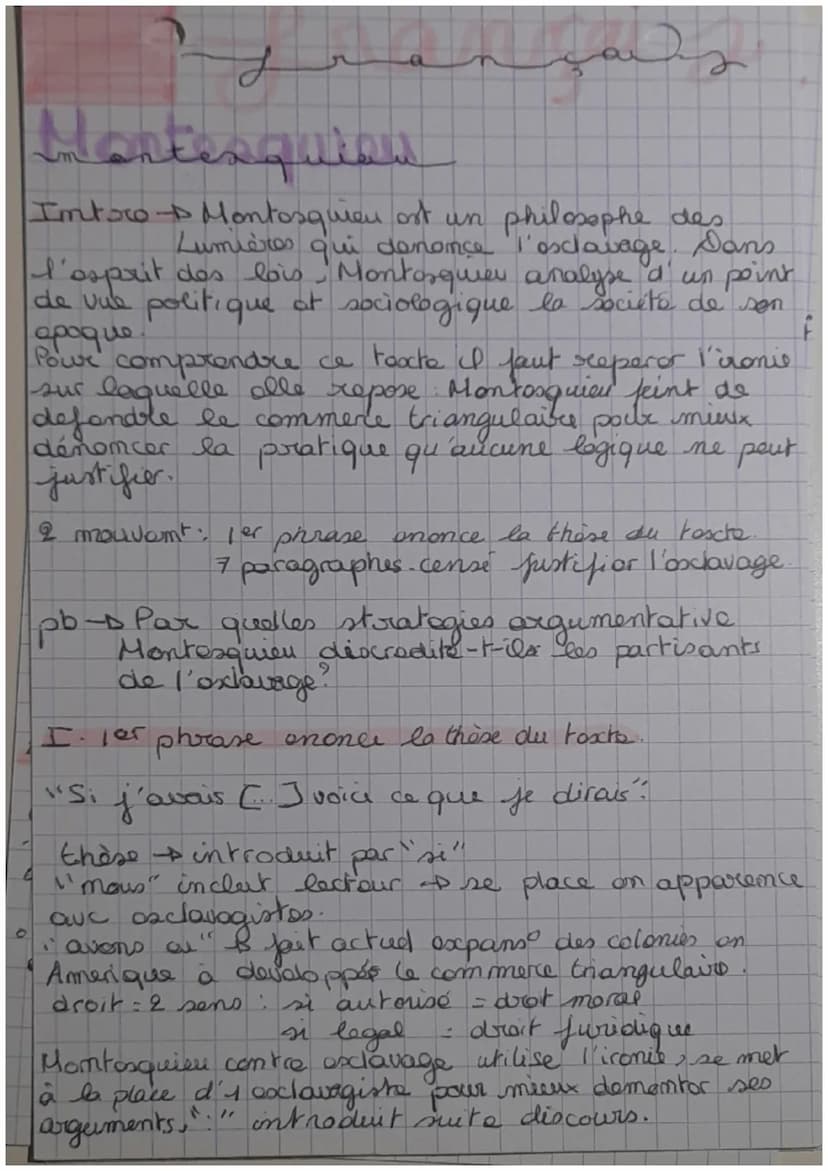 Français
Montesquieu
Intro → Montesquieu est un philosophe des
Lumières qui denonce l'esclavage. Dans
l'esprit des lois, Montesquieu analyse d'un point
de vue politique et sociologique la societé de son
epoque.
Pour comprendre ce texte il faut reperer l'ironie
sur laquelle elle repose : Montesquieu feint de
defendre le commerce triangulaire pour mieux
dénoncer la pratique qu'aucune logique ne peut
justifier.
2 mouvemt : 1er phrase enonce la thèse du texte.
7 paragraphes censé justifier l'esclavage
pb → Par quelles strategies argumentative
Montesquieu discredite-t-ils les partisants
de l'esclavage?
I. 1er phrase enonce la thèse du texte.
"Si j'avais [...] voici ce que je dirais":
thèse → introduit par "si"
"nous" inclut lecteur → se place en apparence
avc esclavagistes.
"avons eu" → fait actuel expans° des colonies en
Amerique à developpés le commerce triangulaire.
droit = 2 sens : si autorisé = droit moral
si legal = droit juridique
Montesquieu contre esclavage utilise l'ironie, se met
à la place d'1 esclavagiste pour mieux dementer ses
arguments, ":" introduit suite discours.